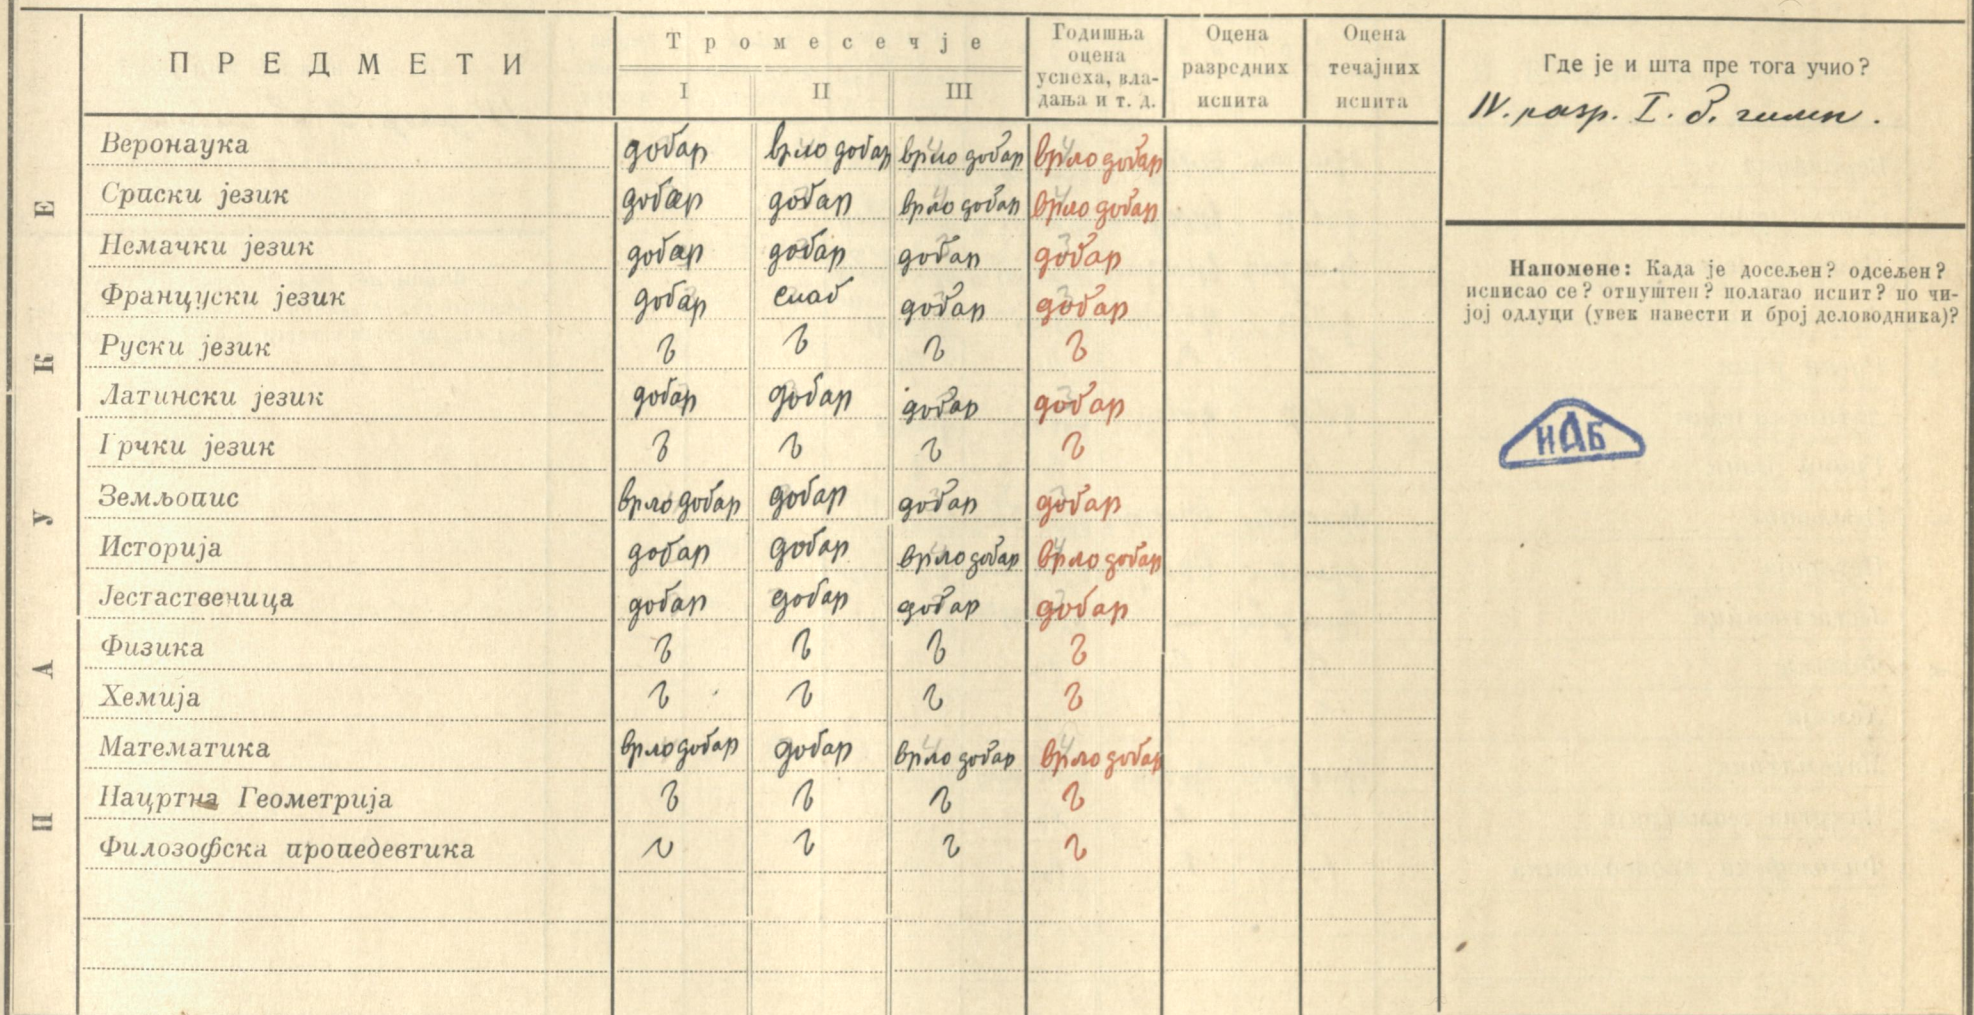 ПРЕДМЕТИ
Тромесечје
I II III
Годишња оцена успеха, вла-дања и т. д.
Оцена разредних испита
Оцена течајних испита
НАУКЕ
Веронаука добар врло добар врло добар врло добар
Српски језик добар добар врло добар врло добар
Немачки језик добар добар добар добар
Француски језик добар слаб добар добар
Руски језик
Латински језик добар добар добар добар
Грчки језик
Земљопис врло добар добар добар добар
Историја добар добар врло добар врло добар
Јестаственица добар добар добар добар
Физика
Хемија
Математика врло добар добар врло добар врло добар
Нацртна Геометрија
Филозофска пропедевтика
Где је и шта пре тога учио?
IV. разр. I. б. гимн.
Напомене: Када је досељен? одсељен?
исписао се? отпуштен? полагао испит? по чи-
јој одлуци (увек навести и број деловодника)?
НАБ